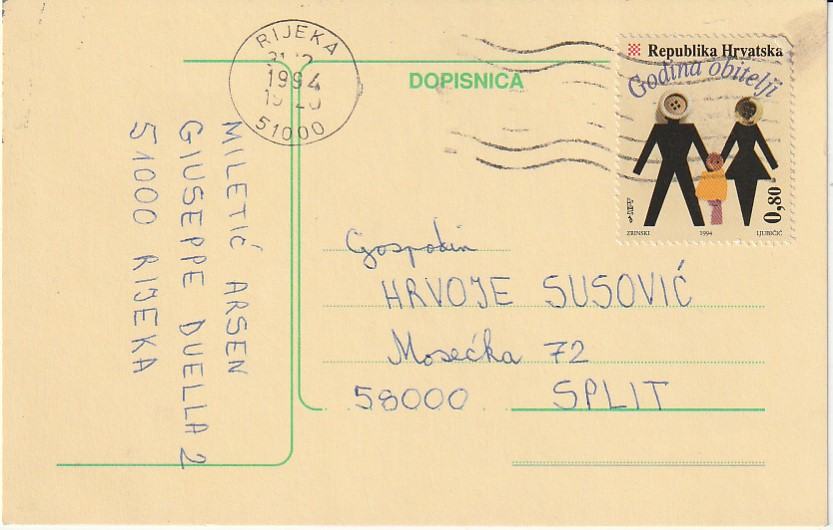 RIJEKA
1994
51000
DOPISNICA
Republika Hrvatska
Godina obitelji
0,80
ZRINSKI 1994 LJUBIČIĆ
MILETIĆ ARSEN
GIUSEPPE DUELLA 2
51000 RIJEKA
Gospodin
HRVOJE SUSOVIĆ
Mosećka 72
58000 SPLIT